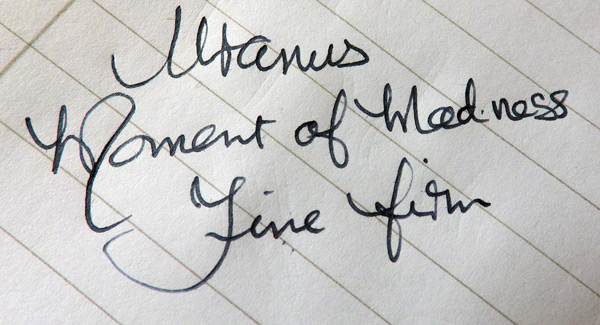 Uranus
Moment of Madness
Fine firm